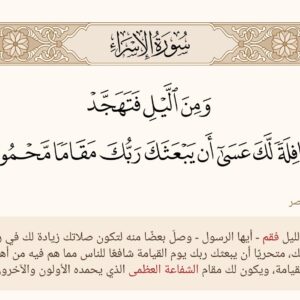 سُورَةُ الإِسْرَاءِ
وَمِنَ ٱلَّيْلِ فَتَهَجَّدْ
افِلَةً لَّكَ عَسَىٰٓ أَن يَبْعَثَكَ رَبُّكَ مَقَامًا مَّحْمُو
صر
لليل فقم - أيها الرسول - وصلّ بعضًا منه لتكون صلاتك زيادة لك في ر
ك، متحريًا أن يبعثك ربك يوم القيامة شافعًا للناس مما هم فيه من أه
قيامة، ويكون لك مقام الشفاعة العظمى الذي يحمده الأولون والآخرو